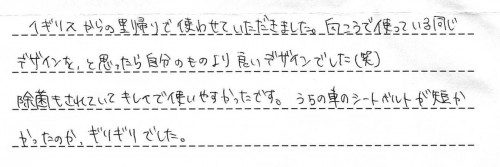 イギリスからの里帰りで使わせていただきました。向こうで使っている同じ
デザインを、と思ったら自分のものより良いデザインでした(笑)
除菌もされていてキレイで使いやすかったです。うちの車のシートベルトが短か
かったのか、ギリギリでした。